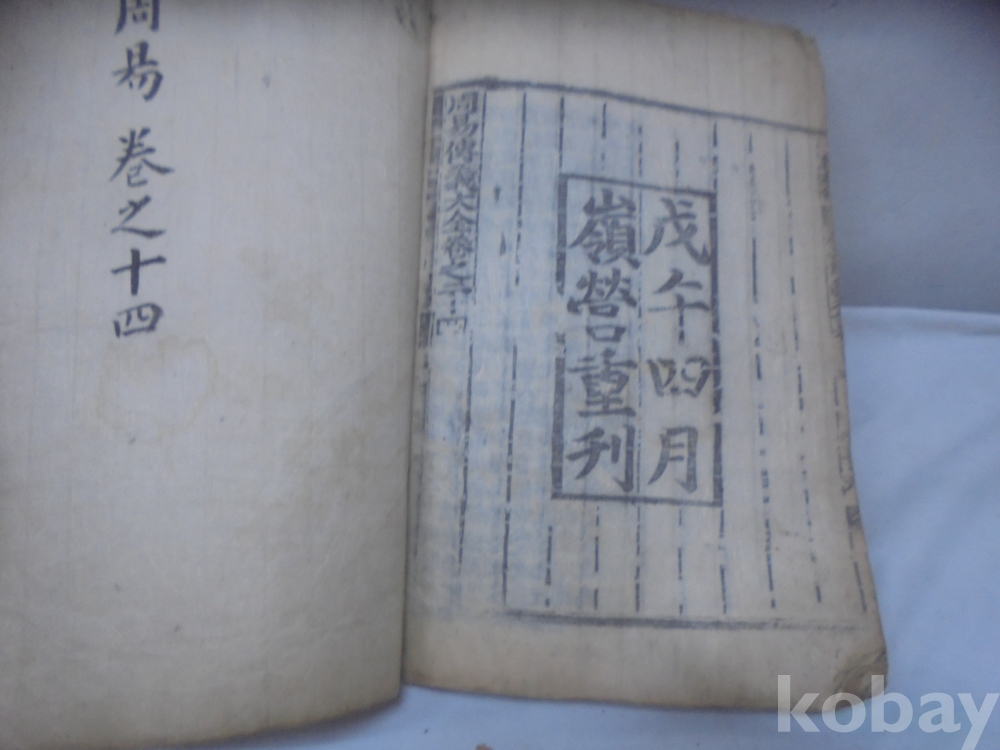 周易 卷之十四
戊午四月
嶺營重刊
周易傳義大全卷之二十四
kobay